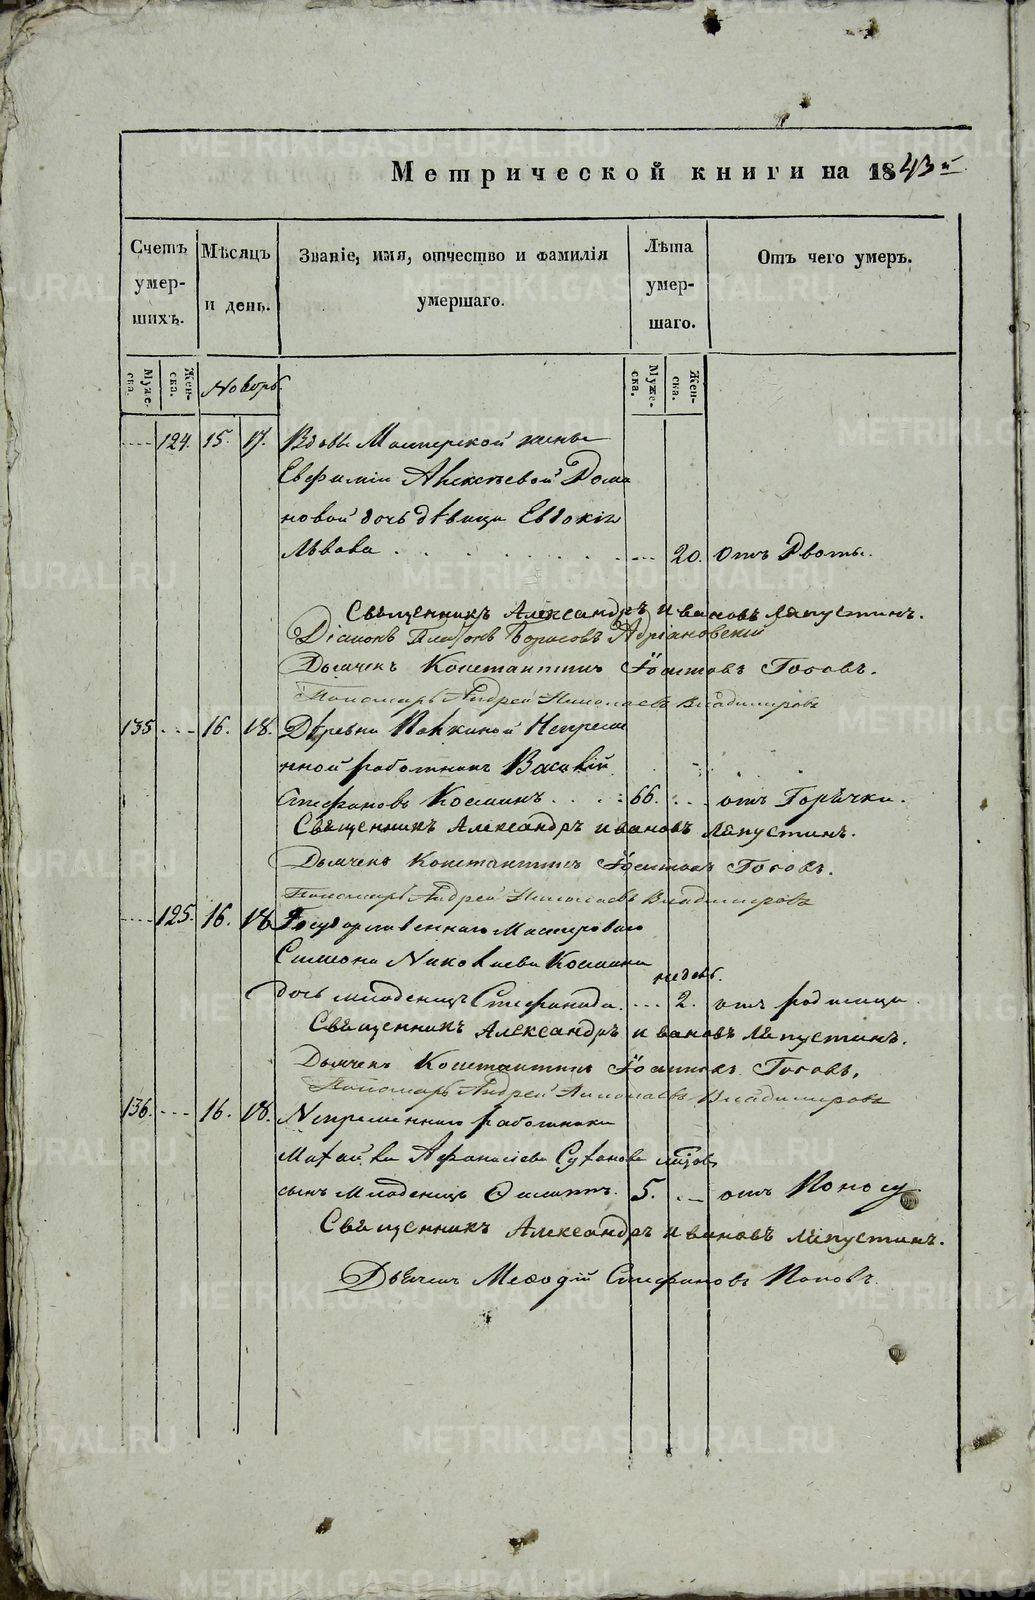 Метрической книги на 1843й
Счетъ умер-шихъ.
Мѣсяцъ и день.
Званіе, имя, отчество и фамилія умершаго.
Лѣта умер-шаго.
Отъ чего умеръ.
Муже-ска.
Жен-ска.
Ноябрь.
Муже-ска.
Жен-ска.
124. 15. 17. Вдовы Мастерской жены
Евфиміи Алексѣевой Рома
новой дочь дѣвица Евдокія
Львова 20. Отъ Рвоты.
Священникъ Александръ Ивановъ Ляпустинъ.
Діаконъ Платонъ Борисовъ Адріановскій
Дьячекъ Константинъ Іоанновъ Гоговъ.
Пономарь Андрей Николаевъ Владиміровъ
135 16. 18. Деревни Непремѣ
нной работникъ Василій
Стефановъ Косминъ 66. отъ Горячки.
Священникъ Александръ Ивановъ Ляпустинъ.
Дьячекъ Константинъ Іоанновъ Гоговъ.
Пономарь Андрей Николаевъ Владиміровъ
125. 16. 18. Государственнаго Мастероваго
Симеона Николаева Космина
недѣл.
дочь младенецъ Стефанида 2. отъ родимца.
Священникъ Александръ Ивановъ Ляпустинъ.
Дьячекъ Константинъ Іоанновъ Гоговъ.
Пономарь Андрей Николаевъ Владиміровъ
136. 16. 18. Непременнаго работника
Афанасіева
сынъ младенецъ 5. отъ Поносу
Священникъ Александръ Ивановъ Ляпустинъ.
Дьячекъ Меѳодій Стефановъ Поповъ.
METRIKI.GASO-URAL.RU